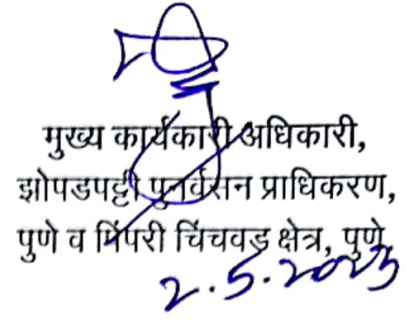 मुख्य कार्यकारी अधिकारी,
झोपडपट्टी पुनर्वसन प्राधिकरण,
पुणे व पिंपरी चिंचवड क्षेत्र, पुणे
2.5.2023